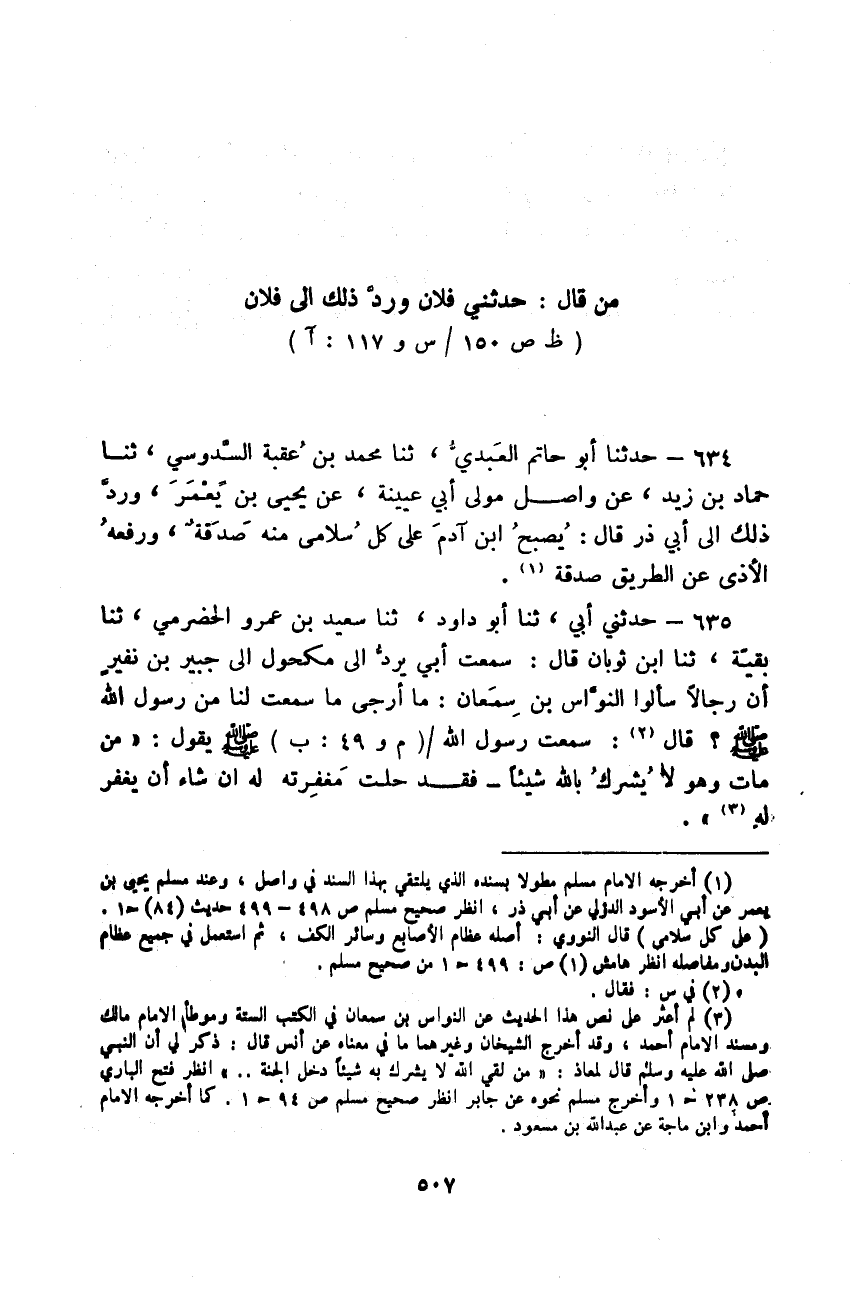 من قال : حدثني فلان وردَّ ذلك الى فلان
( ظ ص ١٥٠ / س و ١١٧ : آ )
٦٣٤ – حدثنا أبو حاتم العَبدي ، ثنا محمد بن عُقبة السَّدوسي ، ثنــا
حماد بن زيد ، عن واصــــل مولى أبي عيينة ، عن يحيى بن يَعْمَرَ ، وردَّ
ذلك الى أبي ذر قال : يُصبحُ ابن آدمَ على كل سُلامى منه صَدقةٌ ، ورفعهُ
الأذى عن الطريق صدقة (١) .
٦٣٥ – حدثني أبي ، ثنا أبو داود ، ثنا سعيد بن عمرو الحضرمي ، ثنا
بقيّة ، ثنا ابن ثوبان قال : سمعت أبي يردُّ الى مكحول الى جبير بن نفيرٍ
أن رجالاً سألوا النوَّاس بن سِمعَان : ما أرجى ما سمعت لنا من رسول الله
ﷺ ؟ قال (٢) : سمعت رسول الله /( م و ٤٩ : ب ) ﷺ يقول : « من
مات وهو لا يُشركُ بالله شيئاً – فقـــد حلت مَغفِرته له ان شاء أن يغفر
له (٣) » .
(١) أخرجه الامام مسلم مطولا بسنده الذي يلتقي بهذا السند في واصل ، وعند مسلم يحيى بن
يعمر عن أبي الأسود الدؤلي عن أبي ذر ، انظر صحيح مسلم ص ٤٩٨ – ٤٩٩ حديث (٨٤) حـ١ .
( على كل سلامى ) قال النووي : أصله عظام الأصابع وسائر الكف ، ثم استعمل في جميع عظام
البدن ومفاصله انظر هامش (١) ص : ٤٩٩ حـ ١ من صحيح مسلم .
(٢) في س : فقال .
(٣) لم أعثر على نص هذا الحديث عن النواس بن سمعان في الكتب الستة وموطأ الامام مالك
ومسند الامام أحمد ، وقد أخرج الشيخان وغيرهما ما في معناه عن أنس قال : ذكر لي أن النبي
صلى الله عليه وسلم قال لمعاذ : « من لقي الله لا يشرك به شيئاً دخل الجنة .. » انظر فتح الباري
ص ٢٣٨ حـ ١ وأخرج مسلم نحوه عن جابر انظر صحيح مسلم ص ٩٤ حـ ١ . كما أخرجه الامام
أحمد وابن ماجة عن عبدالله بن مسعود .
٥٠٧